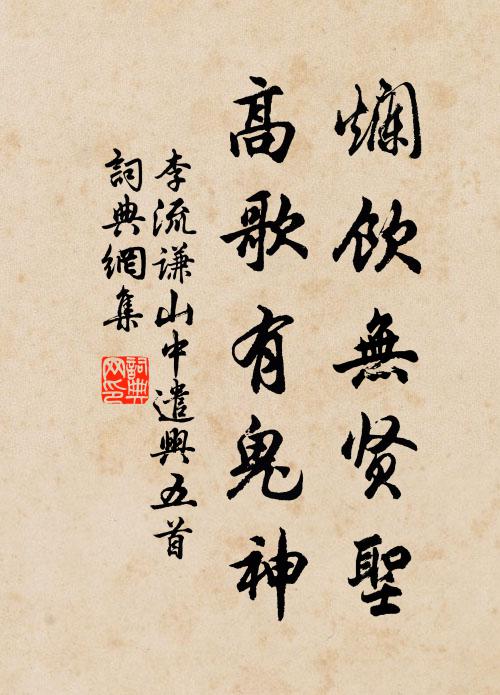 爛飲無贤聖
高歌有鬼神
李流谦山中遣興五首
詞典網集
詞典
网印